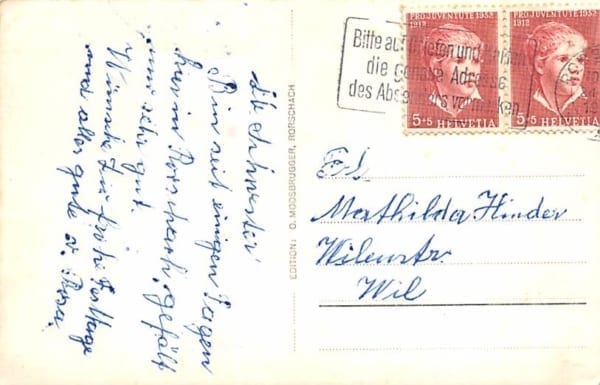 Lb. Schwester
Bin seit einigen Tagen
hier in Rorschach, gefällt
mir sehr gut.
Wünsche Dir frohe Festtage
und alles gute v. Rosa.
EDITION: O. MOOSBRUGGER, RORSCHACH
Bitte auf Briefen und
die genaue Adresse
des Absenders vermerken
PRO JUVENTUTE 1952
1912
5+5 HELVETIA
PRO JUVENTUTE 1952
1912
5+5 HELVETIA
Frl.
Mathilda Hinder
Wilenstr.
Wil